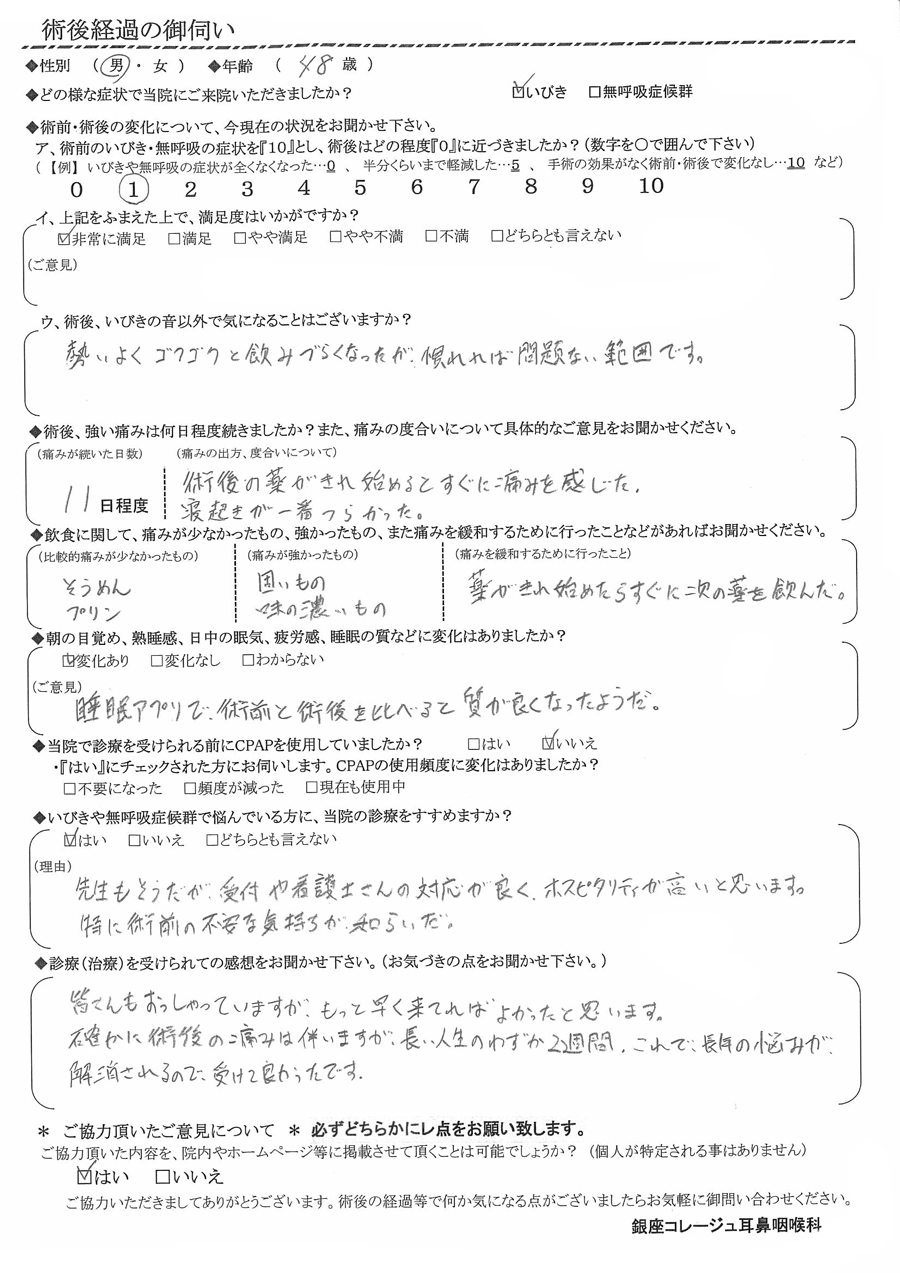 術後経過の御伺い
◆性別 (男・女) ◆年齢 (48歳)
◆どの様な症状で当院にご来院いただきましたか? ☑いびき □無呼吸症候群
◆術前・術後の変化について、今現在の状況をお聞かせ下さい。
ア、術前のいびき・無呼吸の症状を『10』とし、術後はどの程度『0』に近づきましたか?(数字を〇で囲んで下さい)
(【例】いびきや無呼吸の症状が全くなくなった…0 、 半分くらいまで軽減した…5 、 手術の効果がなく術前・術後で変化なし…10 など)
0 1 2 3 4 5 6 7 8 9 10
イ、上記をふまえた上で、満足度はいかがですか?
☑非常に満足 □満足 □やや満足 □やや不満 □不満 □どちらとも言えない
(ご意見)
ウ、術後、いびきの音以外で気になることはございますか?
勢いよくゴクゴクと飲みづらくなったが、慣れれば問題ない範囲です。
◆術後、強い痛みは何日程度続きましたか?また、痛みの度合いについて具体的なご意見をお聞かせください。
(痛みが続いた日数) (痛みの出方、度合いについて)
11日程度
術後の薬がきれ始めるとすぐに痛みを感じた。
寝起きが一番つらかった。
◆飲食に関して、痛みが少なかったもの、強かったもの、また痛みを緩和するために行ったことなどがあればお聞かせください。
(比較的痛みが少なかったもの) (痛みが強かったもの) (痛みを緩和するために行ったこと)
そうめん
プリン
固いもの
味の濃いもの
薬がきれ始めたらすぐに次の薬を飲んだ。
◆朝の目覚め、熟睡感、日中の眠気、疲労感、睡眠の質などに変化はありましたか?
☑変化あり □変化なし □わからない
(ご意見)
睡眠アプリで、術前と術後を比べると質が良くなったようだ。
◆当院で診療を受けられる前にCPAPを使用していましたか? □はい ☑いいえ
・『はい』にチェックされた方にお伺いします。CPAPの使用頻度に変化はありましたか?
□不要になった □頻度が減った □現在も使用中
◆いびきや無呼吸症候群で悩んでいる方に、当院の診療をすすめますか?
☑はい □いいえ □どちらとも言えない
(理由)
先生もそうだが、受付や看護士さんの対応が良く、ホスピタリティが高いと思います。
特に術前の不安な気持ちが、和らいだ。
◆診療(治療)を受けられての感想をお聞かせ下さい。(お気づきの点をお聞かせ下さい。)
皆さんもおっしゃっていますが、もっと早く来てればよかったと思います。
確かに術後の痛みは伴いますが、長い人生のわずか2週間。これで、長年の悩みが、
解消されるので、受けて良かったです。
* ご協力頂いたご意見について * 必ずどちらかにレ点をお願い致します。
ご協力頂いた内容を、院内やホームページ等に掲載させて頂くことは可能でしょうか? (個人が特定される事はありません)
☑はい □いいえ
ご協力いただきましてありがとうございます。術後の経過等で何か気になる点がございましたらお気軽に御問い合わせください。
銀座コレージュ耳鼻咽喉科